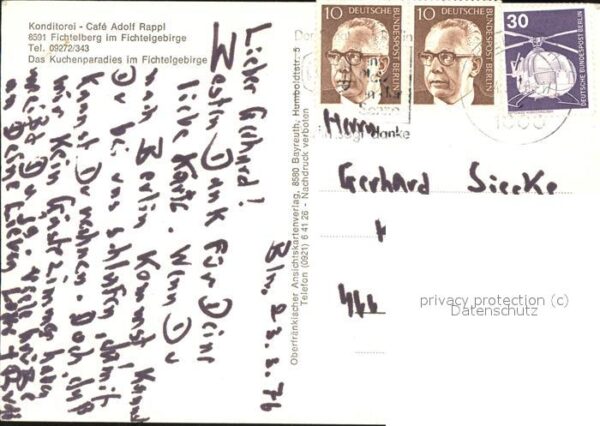 Konditorei - Café Adolf Rappl
8591 Fichtelberg im Fichtelgebirge
Tel. 09272/343
Das Kuchenparadies im Fichtelgebirge
Bln, 23.2.76
Lieber Gerhard!
Besten Dank für Deine
liebe Karte. Wenn Du
nach Berlin kommst, kannst
Du bei uns schlafen, damit
kannst Du rechnen. Doch daß
wir kein Gästezimmer haben
weißt Du ja. Viele Grüße
an Deine Lieben
Oberfränkischer Ansichtskartenverlag, 8580 Bayreuth, Humboldtstr. 5
Telefon (0921) 6 41 26 - Nachdruck verboten
10
DEUTSCHE BUNDESPOST BERLIN
10
DEUTSCHE BUNDESPOST BERLIN
30
DEUTSCHE BUNDESPOST BERLIN
Herrn
Gerhard Siecke
privacy protection (c)
Datenschutz